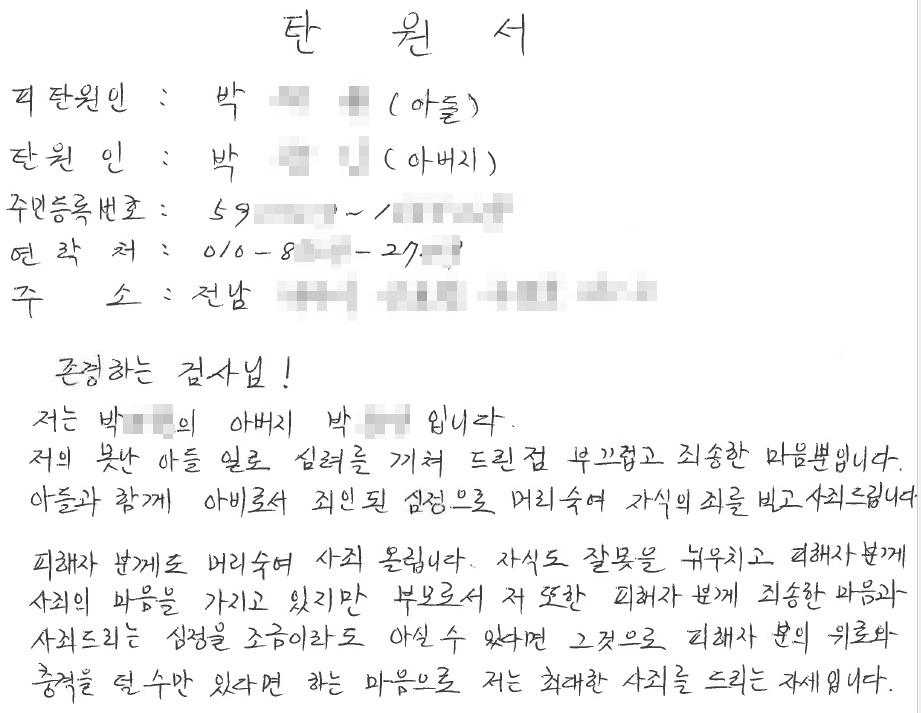 탄 원 서
피탄원인 : 박 (아들)
탄 원 인 : 박 (아버지)
주민등록번호 : 59 ~1
연 락 처 : 010-8 -27
주 소 : 전남
존경하는 검사님!
저는 박 의 아버지 박 입니다.
저의 못난 아들 일로 심려를 끼쳐 드린점 부끄럽고 죄송한 마음뿐입니다.
아들과 함께 아비로서 죄인된 심정으로 머리숙여 자식의 죄를 빌고 사죄드립니다
피해자 분께도 머리숙여 사죄 올립니다. 자식도 잘못을 뉘우치고 피해자분께
사죄의 마음을 가지고 있지만 부모로서 저 또한 피해자 분께 죄송한 마음과
사죄드리는 심정을 조금이라도 아실 수 있다면 그것으로 피해자 분의 위로와
충격을 덜 수만 있다면 하는 마음으로 저는 최대한 사죄를 드리는 자세입니다.